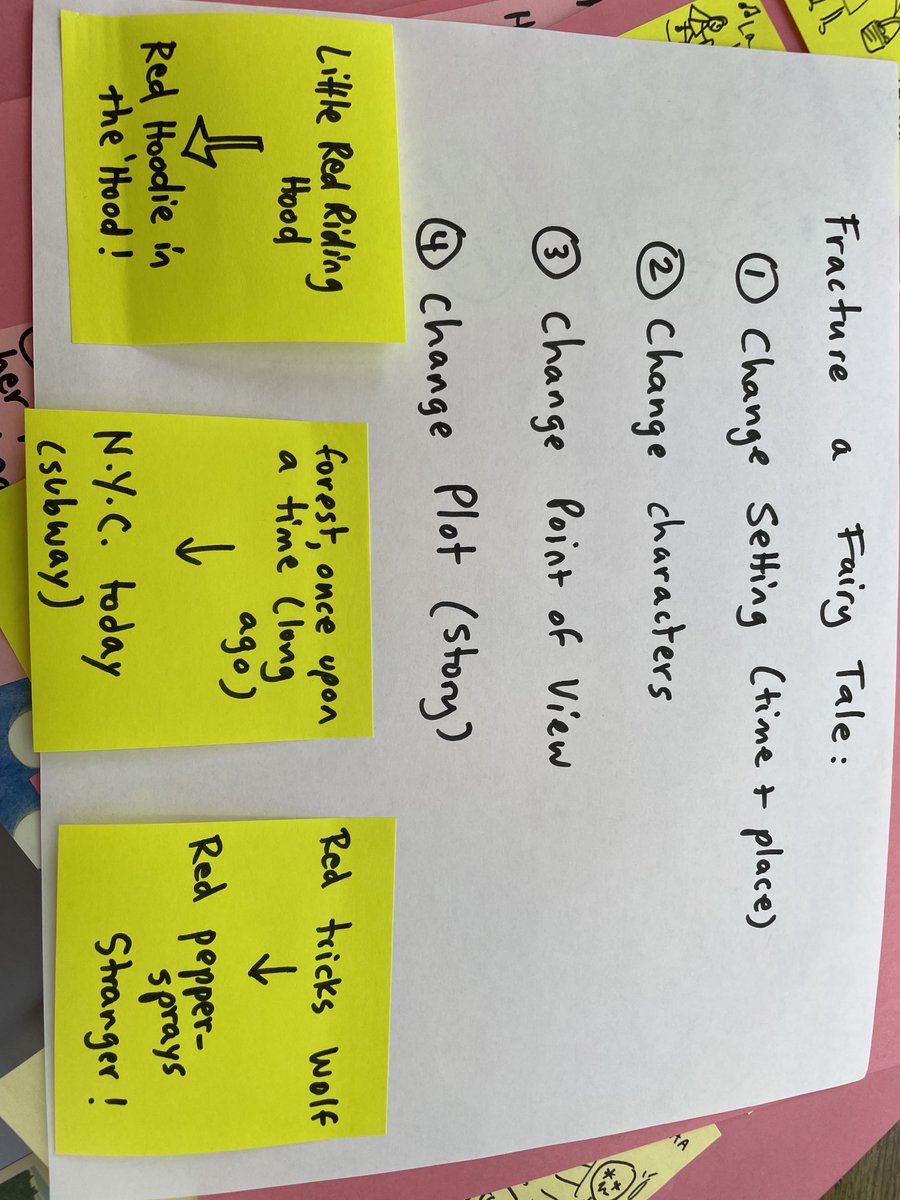 Fracture a Fairy Tale:
① Change Setting (time + place)
② Change characters
③ Change Point of View
④ Change Plot (story)
Little Red Riding
Hood
Red Hoodie in
the 'Hood!
forest, once upon
a time (long
ago)
N.Y.C. today
(subway)
Red tricks Wolf
Red pepper-
sprays
Stranger!